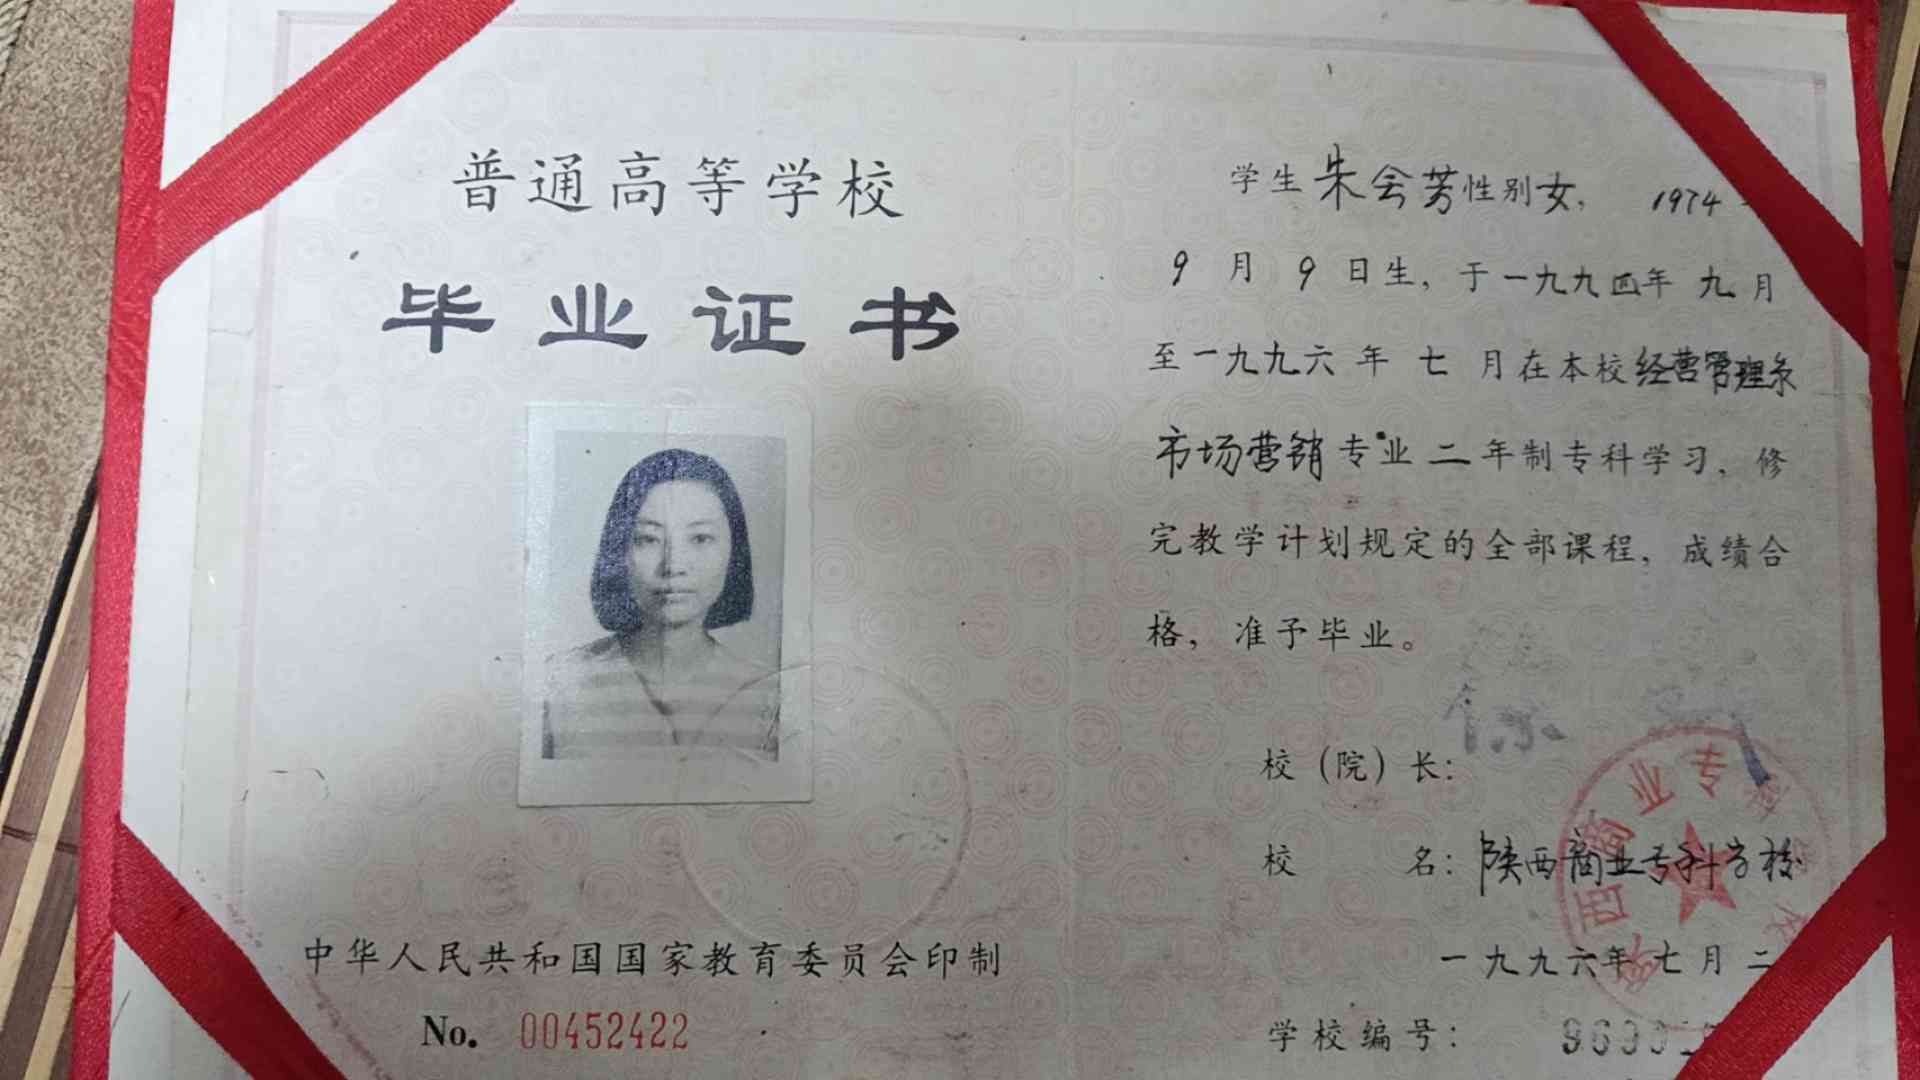 普通高等学校
毕业证书
中华人民共和国国家教育委员会印制
No. 00452422
学生 朱会芳 性别 女， 1974
9 月 9 日生，于一九九四年 九月
至一九九六 年 七 月在本校 经营管理系
市场营销 专业 二 年制专科学习，修
完教学计划规定的全部课程，成绩合
格，准予毕业。
校（院）长：
校 名：陕西商业专科学校
一九九六年七月二
学校编号：
陕西商业专科学校